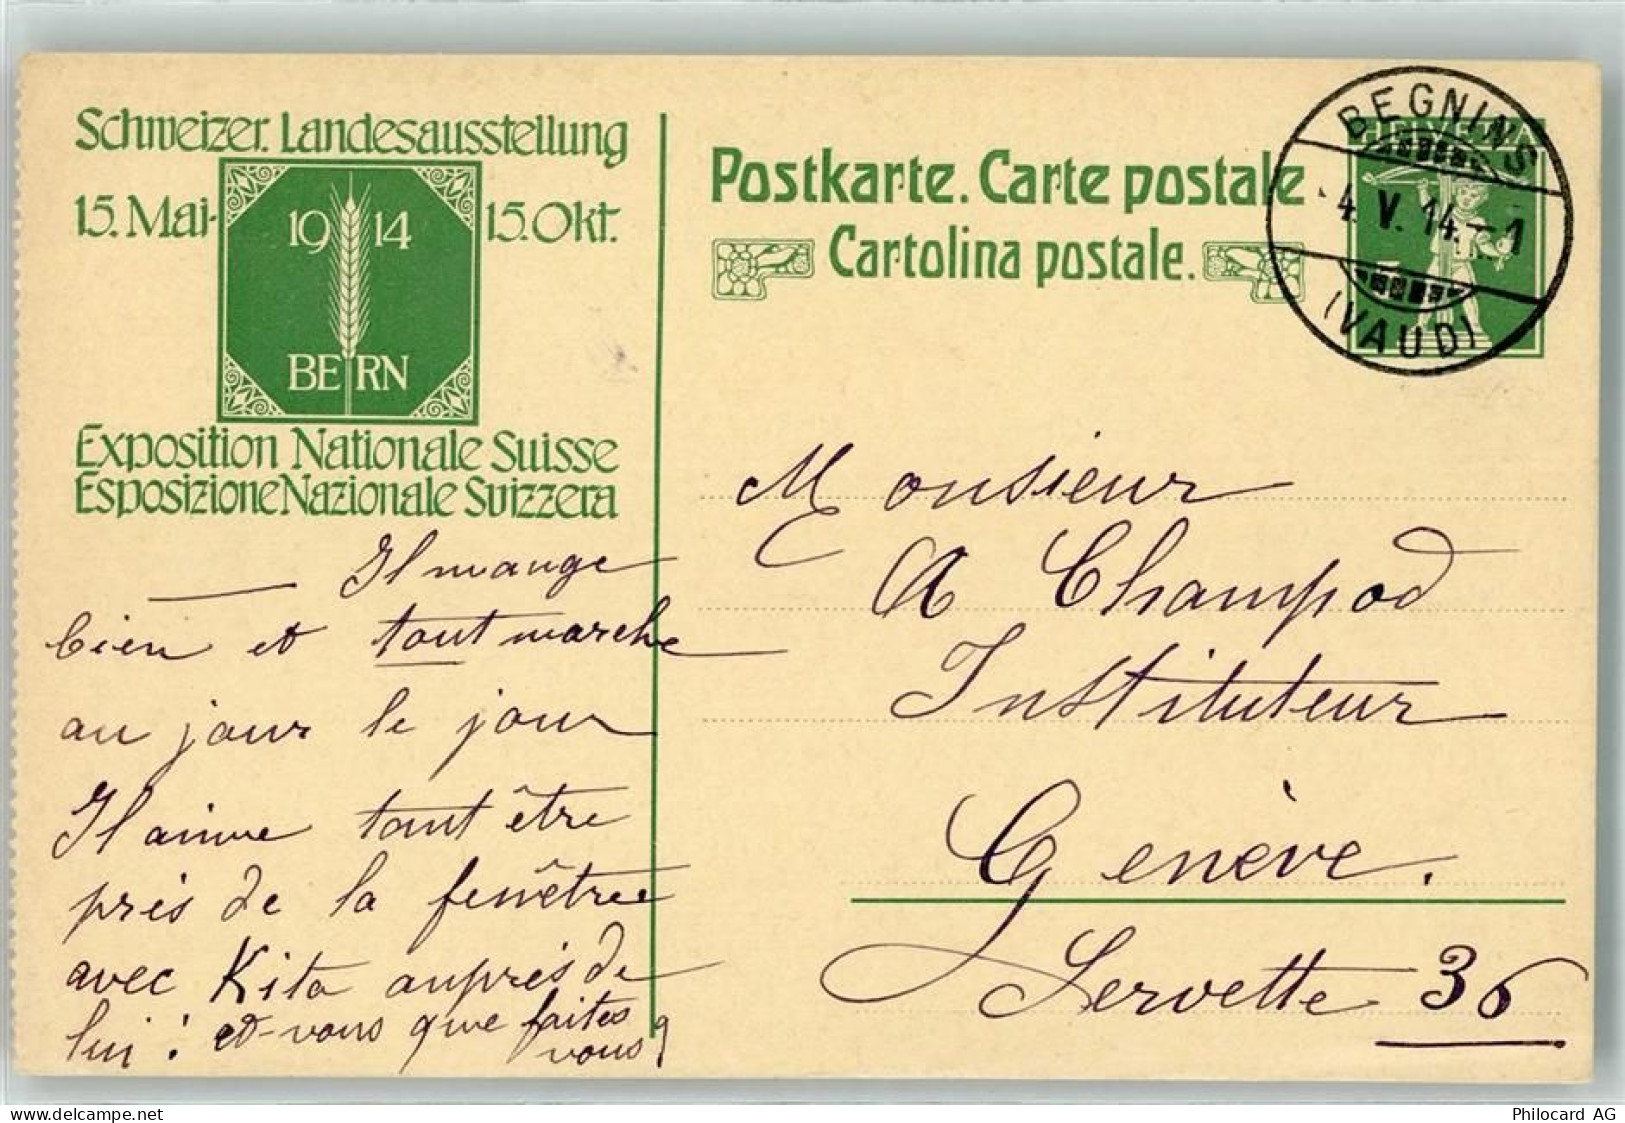 Schweizer. Landesausstellung
15. Mai - 15. Okt.
19 14
BERN
Exposition Nationale Suisse
Esposizione Nazionale Svizzera
Postkarte. Carte postale
Cartolina postale.
HELVETIA
BEGNINS
4. V. 14. - 1
(VAUD)
Il mange
bien et tout marche
au jour le jour
Il aime tant être
près de la fenêtre
avec Kita auprès de
lui! et vous que faites
vous?
Monsieur
A Champod
Instituteur
Genève.
Servette 36
delcampe.net
Philocard AG